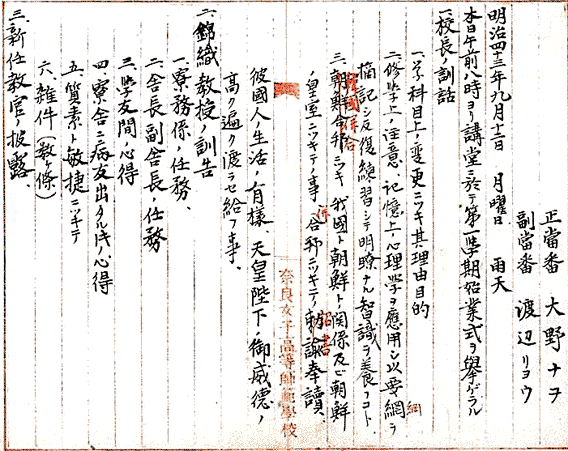 正當番 大野ナヲ
副當番 渡辺リヨウ
明治四十三年九月十二日 月曜日 雨天
本日午前八時ヨリ講堂ニ於テ第一學期始業式ヲ擧ゲラル
一、校長ノ訓話
一、学科目上ノ変更ニツキ其理由目的
二、修學上ノ注意、記憶上心理学ヲ應用シ以要綱ヲ
綱
摘記シ反復練習シテ明瞭ナル智識ヲ養フコト
韓國併合
三、朝鮮合邦ニツキ我國ト朝鮮トノ関係及ビ朝鮮
ノ皇室ニツキテノ事、合邦ニツキテノ勅諭奉讀
併
詔書
彼國人ノ生活ノ有様、天皇陛下ノ御威徳ノ
高ク遍ク渡ラセ給フ事、
二、錦織教授ノ訓告
一、寮務係ノ任務、
二、舎長副舎長ノ任務
三、學友間ノ心得
四、寮舎ニ病友出タルトキノ心得
五、質素ト敏捷ニツキテ
六、雑件(数ヶ條)
三、新任教官ノ披露、
奈良女子高等師範學校